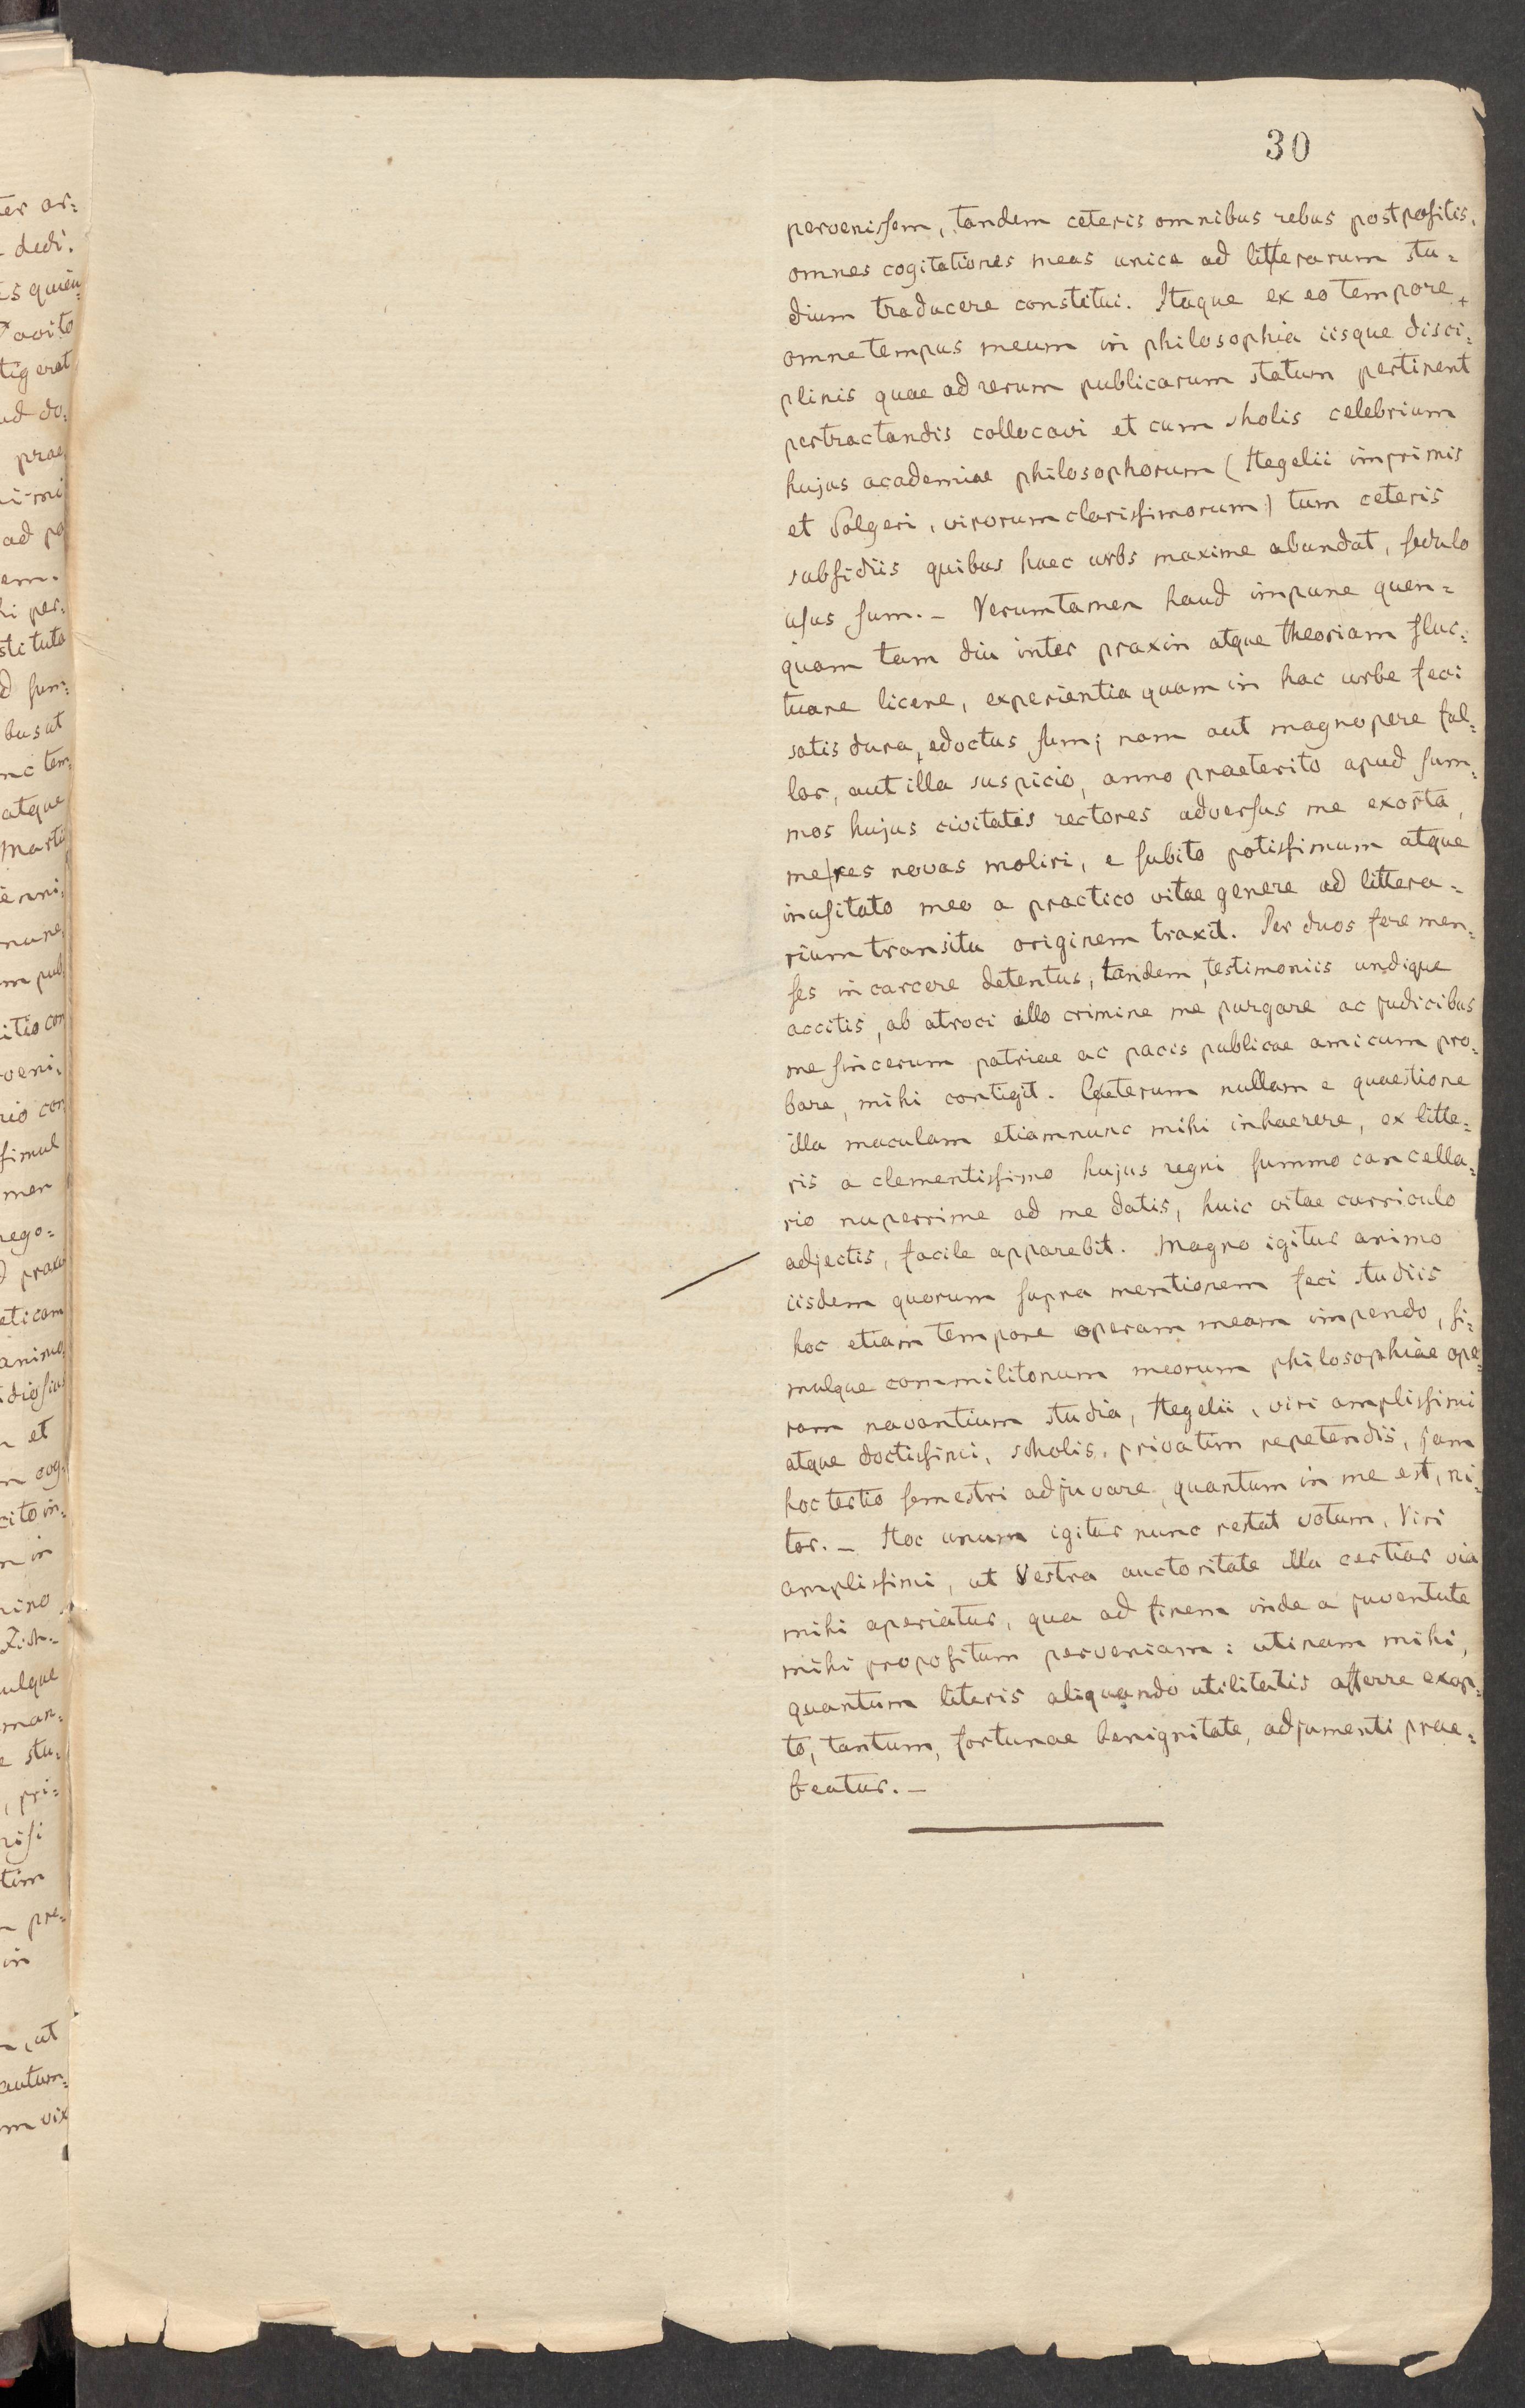 ter ar=
dedi.
ts quien=
tavito
tigeret
ud do=
prae
ad pe
em.
hi per=
stituto
d sum=
bus ut
nc tem=
atque
Marti
ienni=
nune
m pub
itio con
veni=
rio con
simul
men
nego=
d prae
eticam
animo
diosius
n et
n cog=
cito in=
n in
nino
Zisn=
ulque
man=
e stu=
, pri=
nisi
tim
n pre=
in
n, ut
autum=
m vix
30
pervenissem, tandem ceteris omnibus rebus postpositis,
omnes cogitationes meas unice ad litterarum stu=
dium traducere constitui. Itaque ex eo tempore
omne tempus meum in philosophia iisque disci=
plinis quae ad rerum publicarum statum pertinent
pertractandis collocavi et cum sholis celebrium
hujus academiae philosophorum (Hegelii imprimis
et Solgeri, virorum clarissimorum) tum ceteris
subsidiis quibus haec urbs maxime abundat, sedulo
usus sum. – Verumtamen haud impune quen=
quam tam diu inter praxin atque theoriam fluc=
tuare licere, experientia quam in hac urbe feci
satis dura, edoctus sum; nam aut magnopere fal=
lor, aut illa suspicio, anno praeterito apud sum=
mos hujus civitatis rectores adversus me exorta,
me res novas moliri, e subito potissimum atque
inusitato meo a practico vitae genere ad littera=
rium transitu originem traxit. Per duos fere men=
ses in carcere detentus, tandem, testimoniis undique
accitis, ab atroci illo crimine me purgare ac judicibus
me sincerum patriae ac pacis publicae amicum pro=
bare, mihi contigit. Ceterum nullam e quaestione
illa maculam etiamnunc mihi inhaerere, ex litte=
ris a clementissimo hujus regni summo cancella=
rio nuperrime ad me datis, huic vitae curriculo
adjectis, facile apparebit. Magno igitur animo
iisdem quorum supra mentionem feci studiis
hoc etiam tempore operam meam impendo, si=
mulque commilitonum meorum philosophiae ope=
ram navantium studia, Hegelii, viri amplissimi
atque doctissimi, scholis, privatim repetendis, jam
hoc tertio semestri adjuvare, quantum in me est, ni=
tor. – Hoc unum igitur nunc restat votum, Viri
amplissimi, ut Vestra auctoritate illa certior via
mihi aperiatur, qua ad finem inde a juventute
mihi propositum perveniam: utinam mihi,
quantum literis aliquando utilitatis afferre exop=
to, tantum, fortunae benignitate, adjumenti prae=
beatur. –